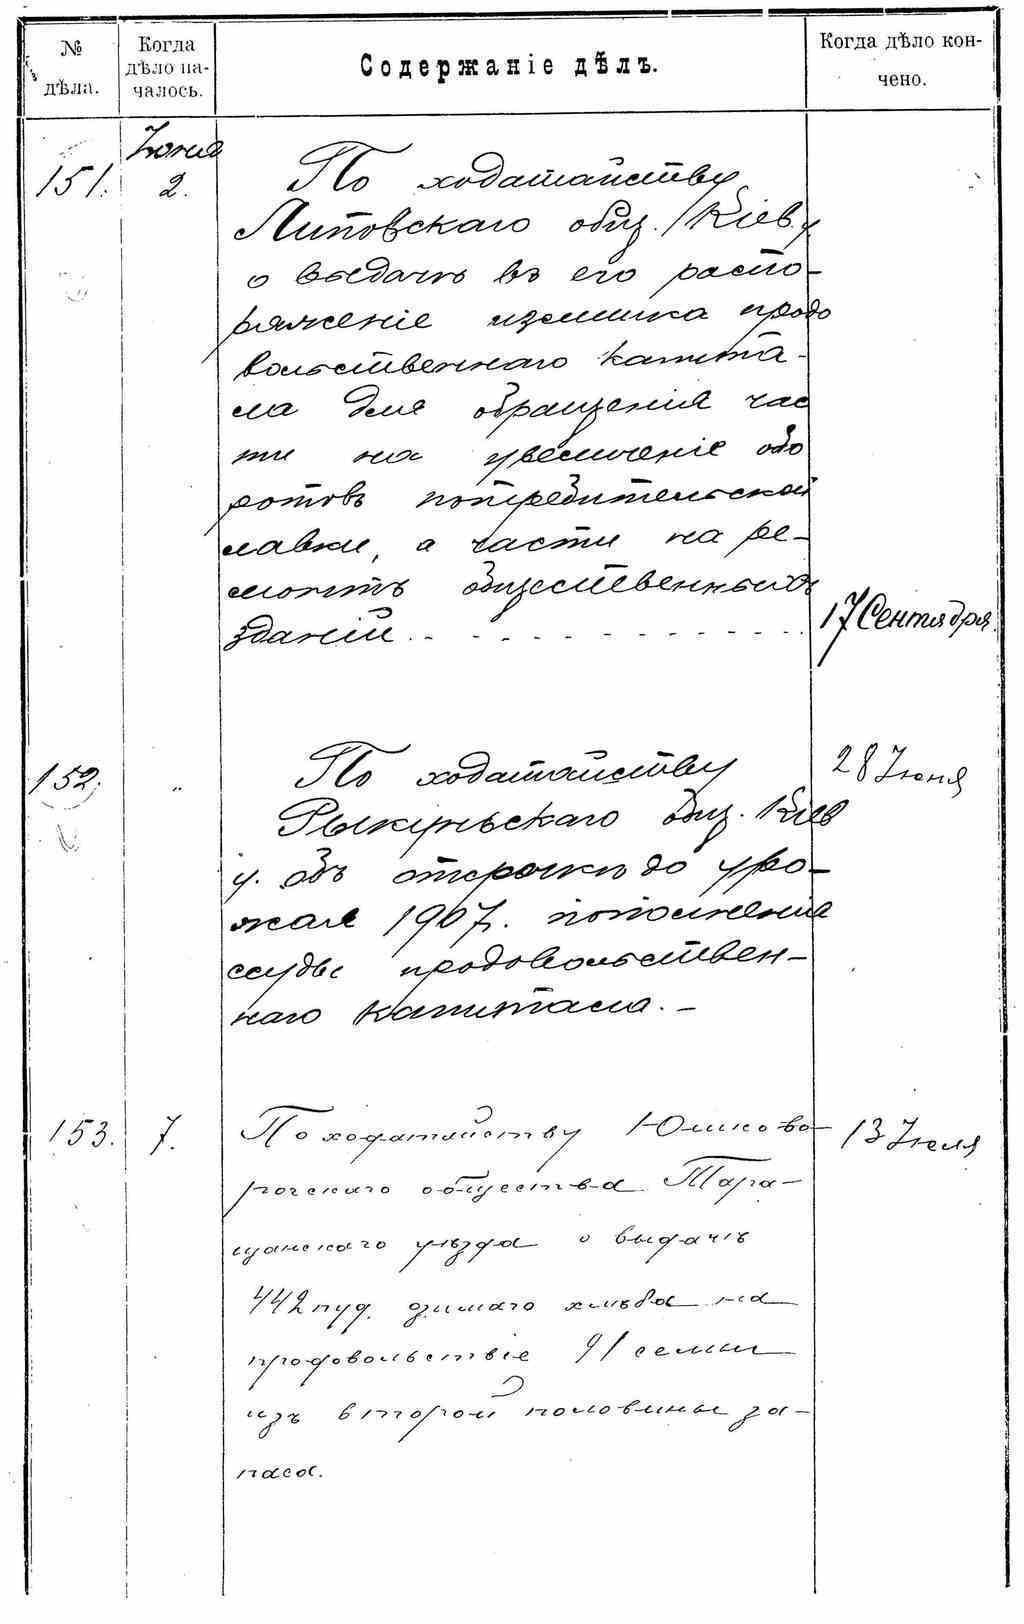 № дѣла.
Когда дѣло на-
чалось.
Содержаніе дѣлъ.
Когда дѣло кон-
чено.
Июня
151. 2. По ходатайству
Липовскаго общ. Кіев. у.
о выдачѣ въ его распо-
ряженіе излишка продо
вольственнаго капита-
ла для обращенія час
ти на увеличеніе обо
ротовъ потребительской
лавки, а части на ре-
монтъ общественныхъ
зданій. 17 Сентября.
152. „ По ходатайству 28 Іюня
общ. Кіев
у. объ отсрочкѣ до уро-
жая 1907. пополненія
ссуды продовольствен-
наго капитала. -
153. 7. По ходатайству 13 Іюля
общества Тара-
щанскаго уѣзда о выдачѣ
442 пуд. озимаго хлѣба на
продовольствіе 91 семьи
изъ второй половины за-
паса.